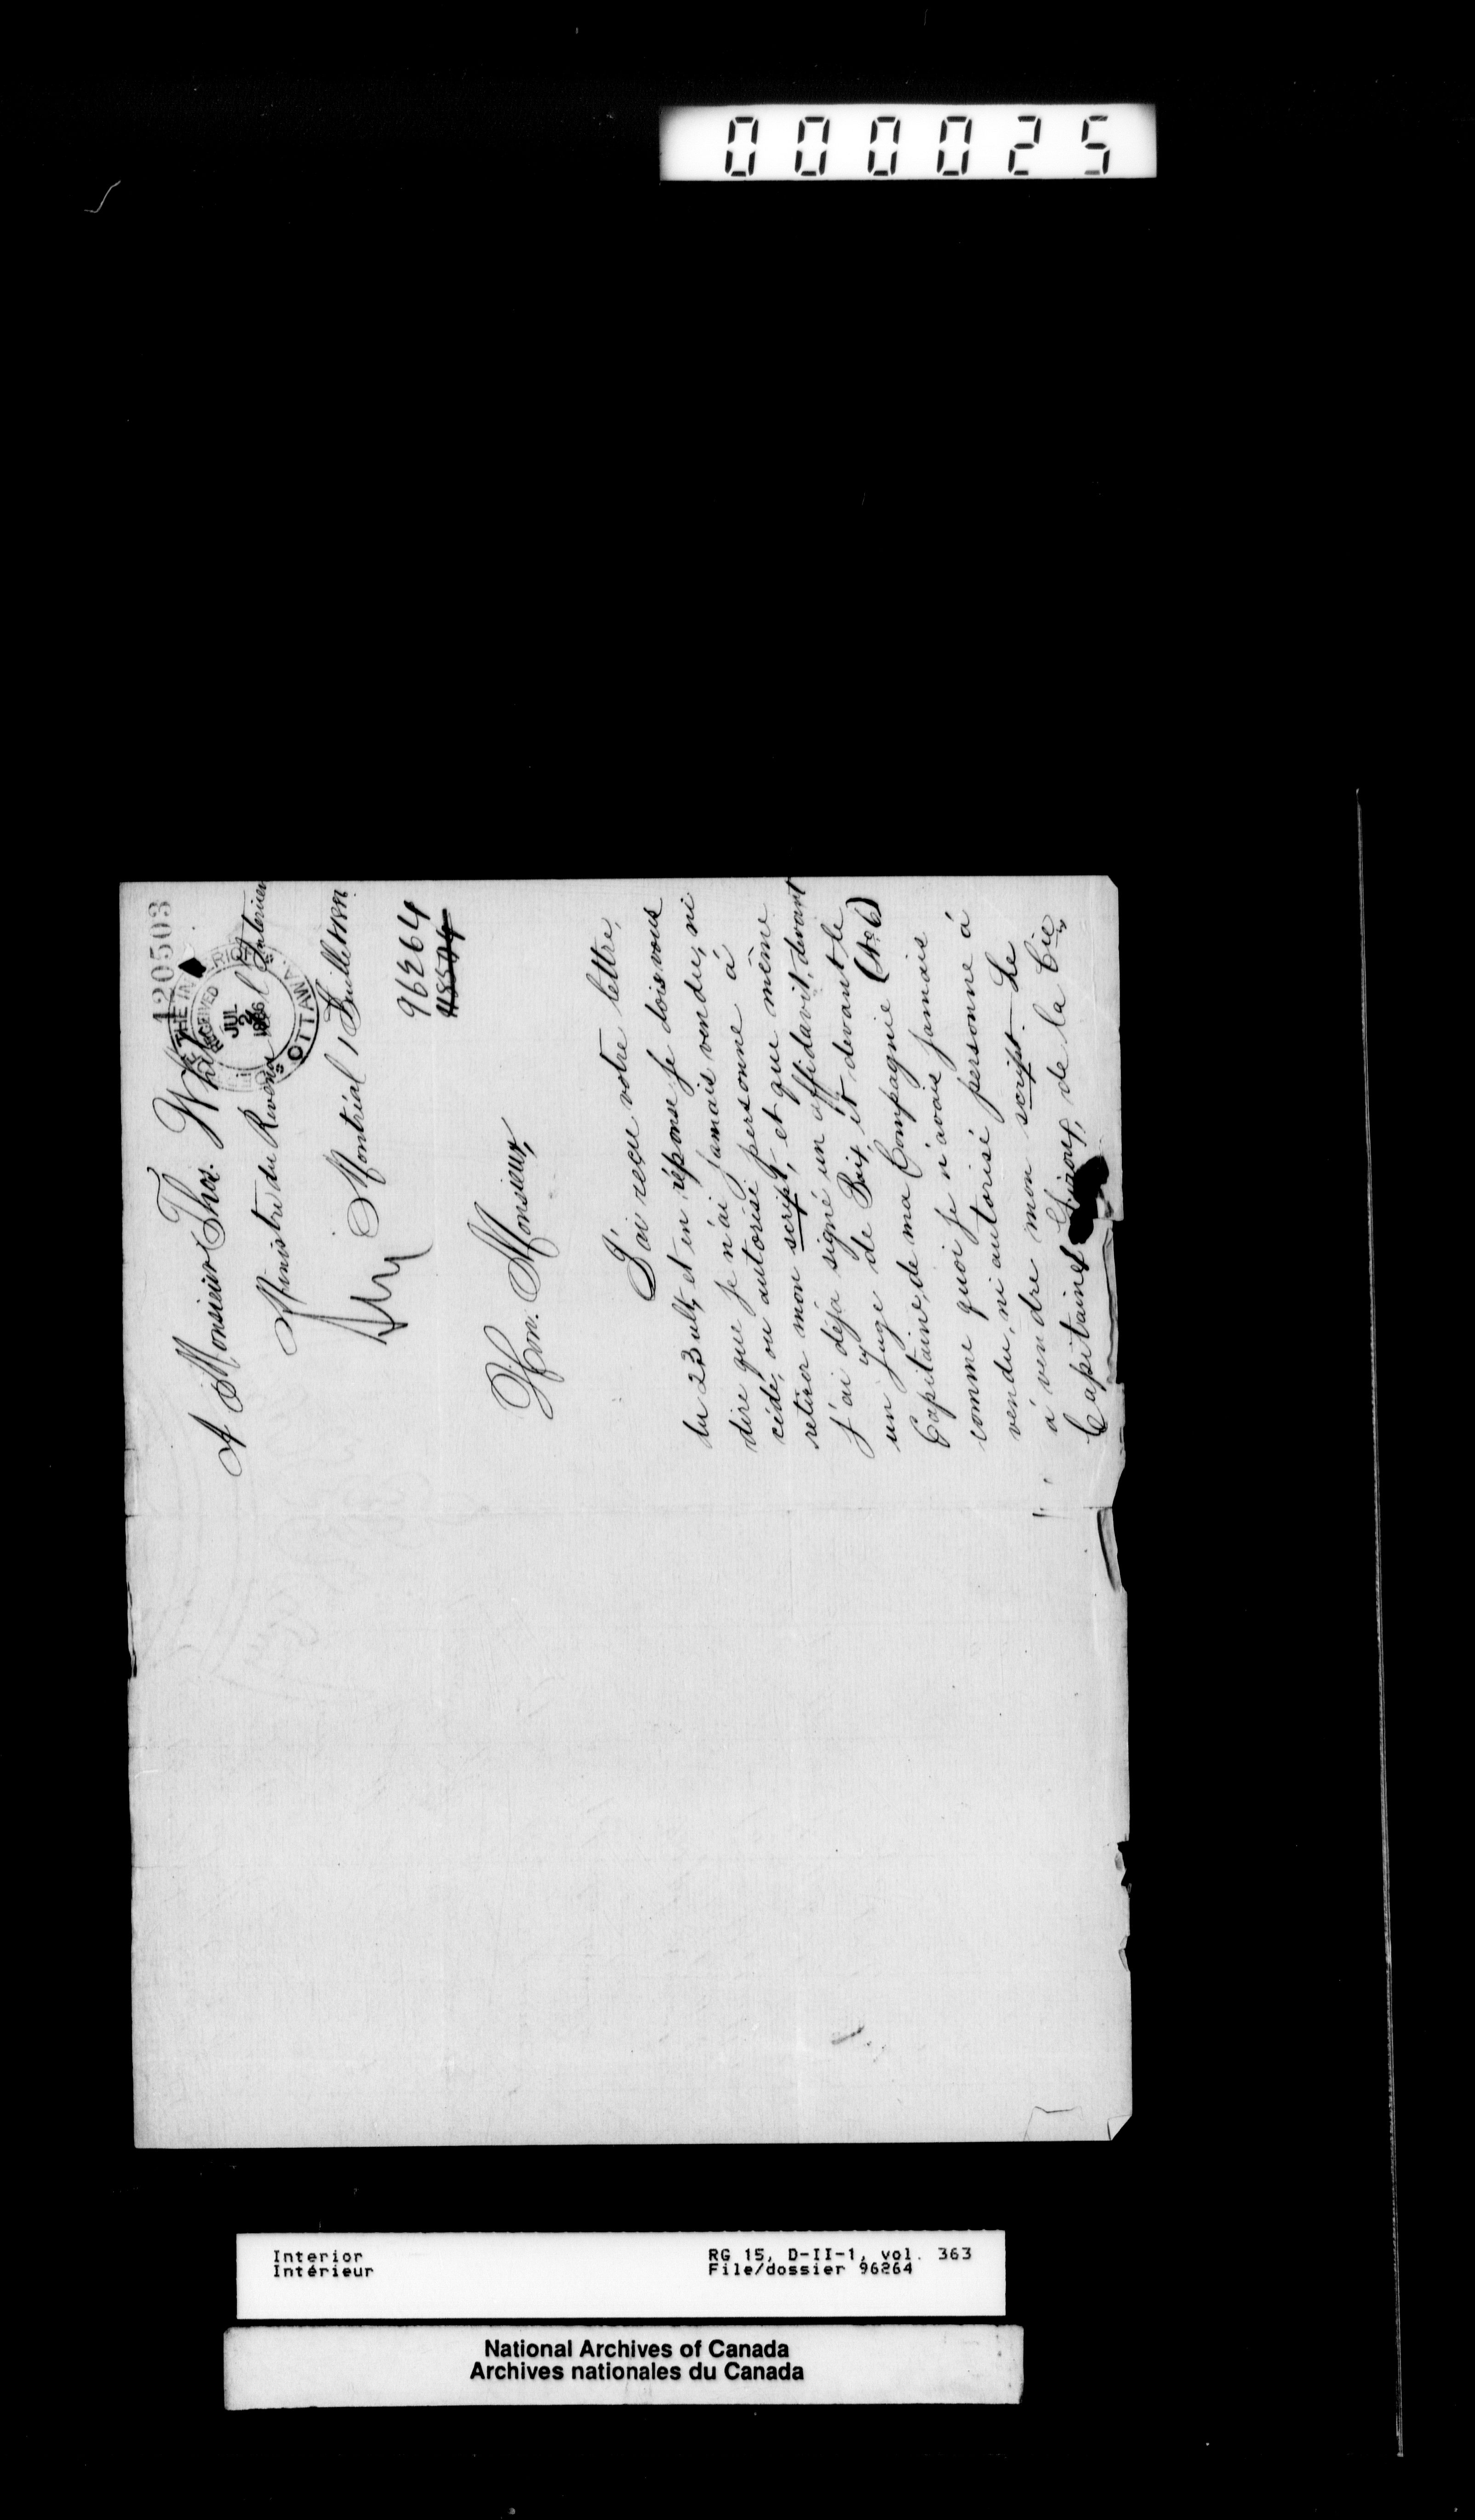 000025
120503
RECEIVED
JUL
2
1886
OTTAWA
A Monsieur Thos. White
Ministre du Revenu de l'Intérieur
Montréal 1 Juillet 1886
96264
Hon. Monsieur,
J'ai reçu votre lettre,
du 23 ult, et en réponse je dois vous
dire que je n'ai jamais vendu, ni
cédé, ou autorisé personne à
retirer mon script, et que même
j'ai déjà signé un affidavit, devant
un Juge de Paix, et devant le
Capitaine de ma Compagnie (No 6)
comme quoi je n'avais jamais
vendu, ni autorisé personne à
à vendre mon script — Le
Capitaine Giroux, de la Cie
Interior
Intérieur
RG 15, D-II-1, vol. 363
File/dossier 96264
National Archives of Canada
Archives nationales du Canada